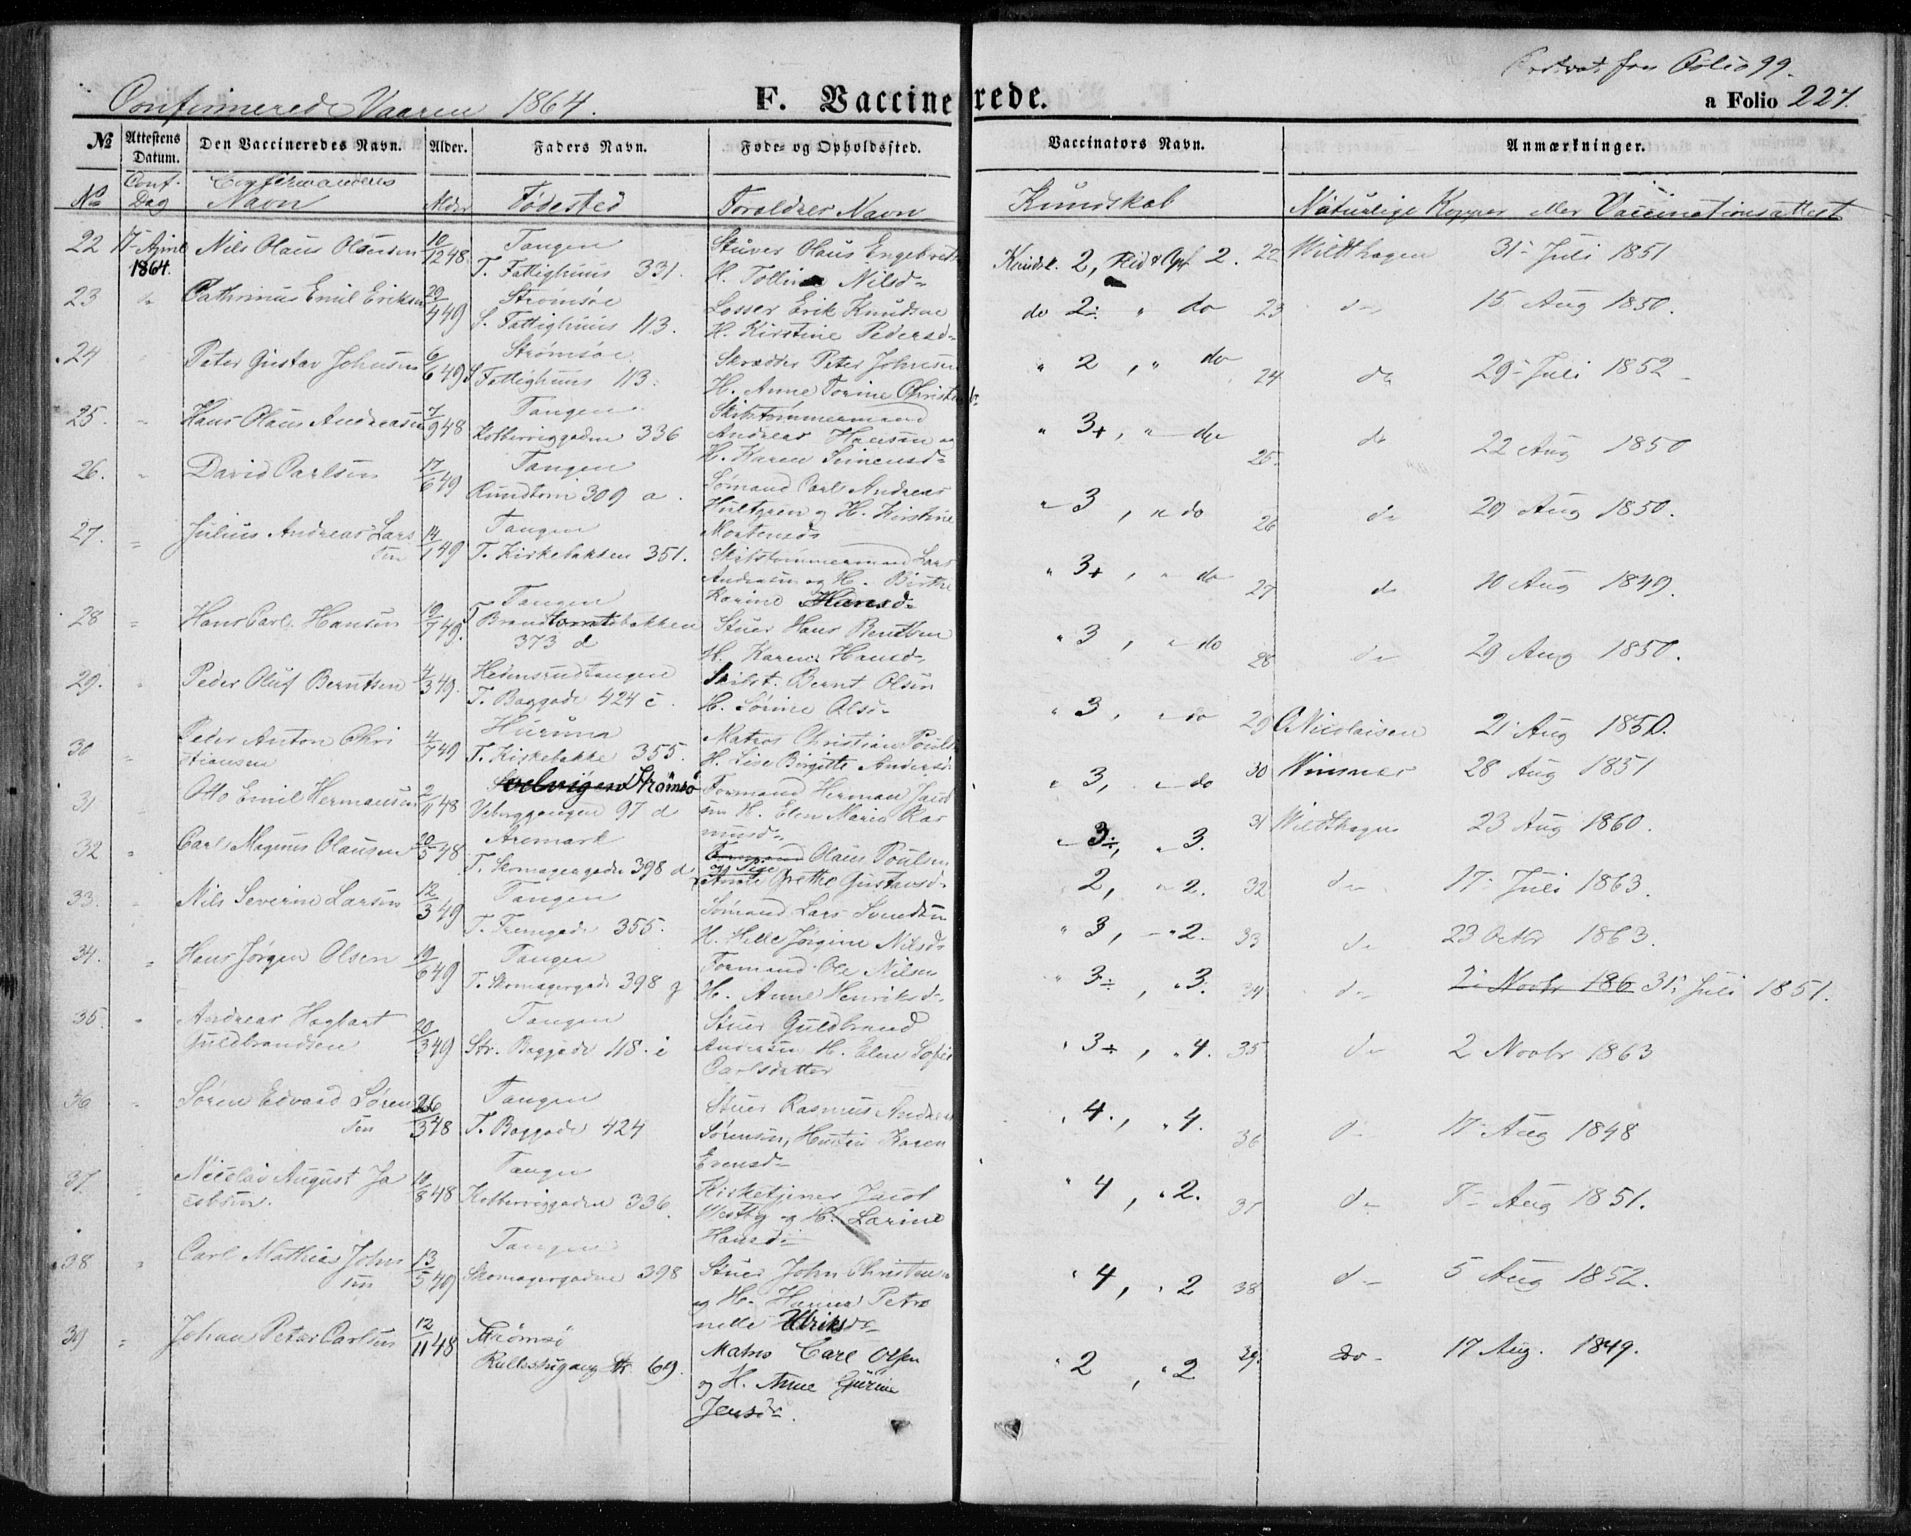 Confirmerede Vaaren 1864.
F. Vaccinerede.
fra Folio 99.
a Folio 227.
No Attestens Datum. Den Vaccineredes Navn. Alder. Faders Navn. Føde- og Opholdssted. Vaccinators Navn. Anmærkninger.
No Conf. Dag Confirmandens Navn Alder Fødested Forældres Navn Kundskab Naturlige Kopper eller Vaccinationsattest
22 17 April 1864. Nils Olaus Olausen 10/12 48 Tangen
T. Fattighuus 331.
Stuver Olaus Engebrets
H. Nilsd
Kundsk. 2, Flid & Opf 2. 22 Wildthagen 31 Juli 1851
23 do Cathrinus Emil Eriksen 20/4 49 Strømsøe
S. Fattighuus 113.
Losser Erik Knudsen
H. Kirstine Pedersd
do 2÷ " do 23 do 15 Aug 1850.
24 " Peter Gustav Johnsen 6/6 49 Strømsøe
S Fattighuus 113.
Skrædder Peter Johnsen
H. Anne Torine Christensd
" 2, " do 24 do 29 Juli 1852
25. " Hans Olaus Andreasen 7/9 48 Tangen
336
Skibstømmermand
Andreas Hansen og
H. Karen Simensd
" 3+, " do 25. do 22 Aug 1850
26. " David Carlsen 17/6 49 Tangen
Rundtom 309 a.
Sømand Carl Andreas
Hultgren og H. Kirstine
Mortensd
" 3, " do 26 do 29 Aug 1850.
27. " Julius Andreas Lars
sen 14/1 49 Tangen
T. Kirkebakken 351.
Skibstømmermand Lars
Andersen og H. Birthe
Karine Hansd
" 3+, " do 27 do 10 Aug 1849.
28 " Hans Carl Hansen 19/7 49. Tangen
T Brandtomtebakken
373 d
Stuer Hans Bentsen
H. Karen Hansd
" 3, " do 28 do 29 Aug 1850.
29. " Peder Oluf Berntsen 4/3 49. Hedensrudtangen
T. Baggade 424 c.
Skibst. Bernt Olsen
H. Sørine Olsd
" 3, " do 29 Nicolaisen 21 Aug 1850.
30 " Peder Anton Chri
stiansen 4/7 49 Hurum
T. Kirkebakke 355.
Matros Christian Pouls
H. Lise Birgitte Andersd
" 3, " do 30 Winsnes 28 Aug 1851
31 Otto Emil Hermansen 2/11 48 Strømsø
97 d
Formand Herman Jacob
sen H. Elen Maria Ras
musd
" 3÷, " 3. 31 Wildthagen 23 Aug 1860.
32 " Carl Magnus Olausen 20/5 48 Aremark
T. Skomagergaden 398 d
Olaus Poulsen
og Pige
Grethe Gustavsd
2, " 2. 32 do 17 Juli 1863.
33. " Nils Severin Larsen 12/3 49 Tangen
T. Fremgade 355.
Sømand Lars Svendsen
H. Helle Jørgine Nilsd
" 3, " 2. 33 do 23 Octbr 1863.
34. " Hans Jørgen Olsen 19/6 49 Tangen
T. Skomagergade 398 g
Formand Ole Nilsen
H. Anne Henriksd
" 3÷, " 3. 34 do 2 Novbr 186 31 Juli 1851.
35. " Andreas Hagbart
Guldbrandsen 20/3 49 Tangen
Str. Baggade 118. i
Stuer Guldbrand
Andersen H. Elen Sofie
Carlsdatter
" 3+, " 4. 35 do 2 Novbr 1863
36 " Søren Edvard Søren
sen 26/3 48 Tangen
T. Baggade 424
Stuer Rasmus Andreas
Sørensen, Hustru Karen
Evensd
" 4., " 4. 36 do 17 Aug 1848
37. " Nicolai August Ja
cobsen. 10/8 48 Tangen
336.
Kirketjener Jacob
Westby og H. Larine
Hansd
" 4, " 2. 37 do 7 Aug 1851.
38 " Carl Mathias John
sen 13/5 49 Tangen
Skomagergaden 398
Stuer John Christens
og H. Hanna Petro
nelle Ulriksd
" 4, " 2 38 do 5 Aug 1852.
39 " Johan Peter Carlsen 12/11 48 Strømsø
69.
Matros Carl Olsen
og H. Anne Gurine
Jensd.
" 2, " 2 39. do 17 Aug. 1849.